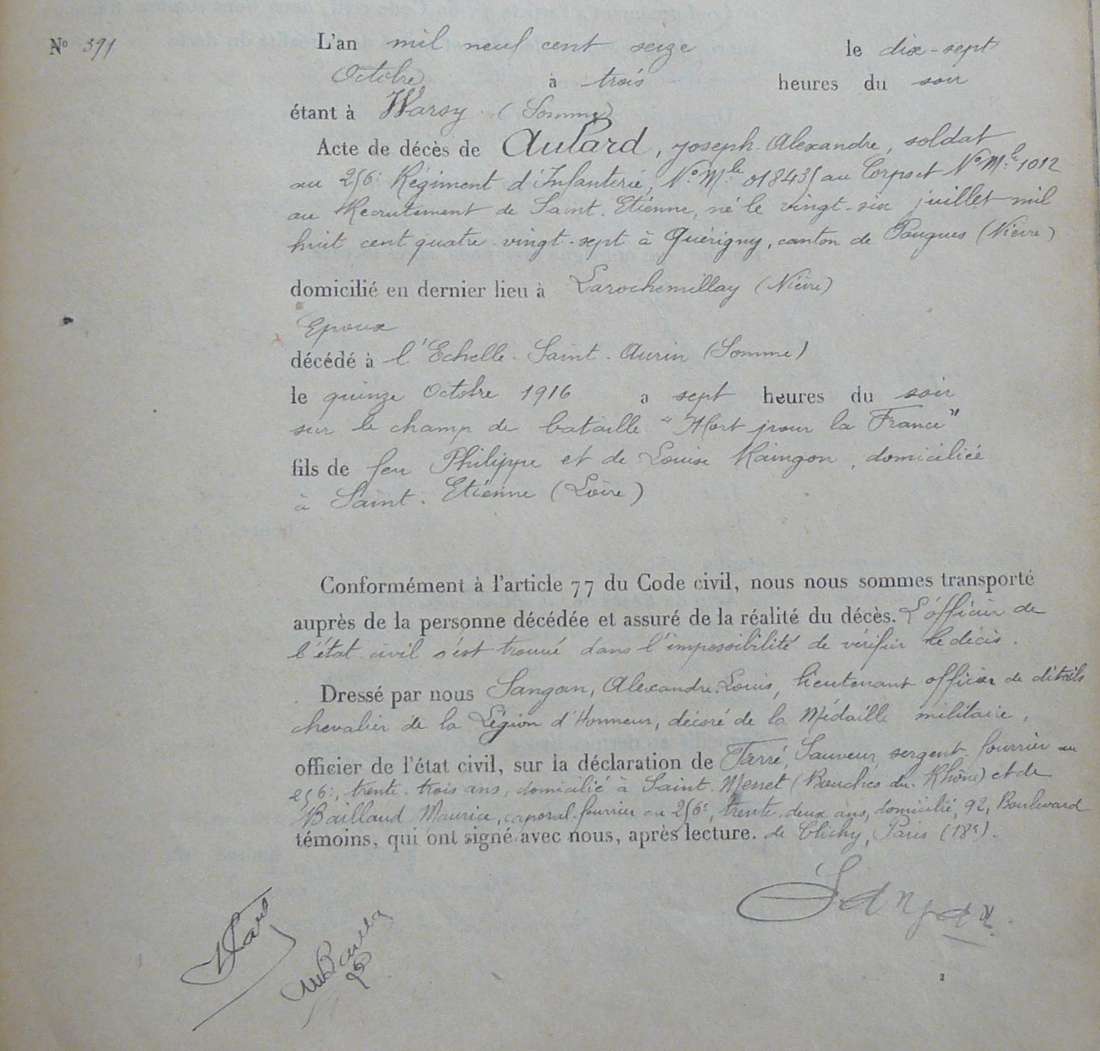 N° 391
L'an mil neuf cent seize le dix-sept
Octobre à trois heures du soir
étant à Warsy (Somme)
Acte de décès de Aulard, Joseph-Alexandre, soldat
au 256e Régiment d'Infanterie, N° Mle 01843 au Corps et N° Mle 1012
au Recrutement de Saint-Etienne, né le vingt-six juillet mil
huit cent quatre-vingt-sept à Guérigny, canton de Pougues (Nièvre)
domicilié en dernier lieu à Larochemillay (Nièvre)
Epoux
décédé à l'Echelle-Saint-Aurin (Somme)
le quinze Octobre 1916 a sept heures du soir
sur le champ de bataille "Mort pour la France"
fils de feu Philippe et de Louise Raingon, domiciliée
à Saint-Etienne (Loire)
Conformément à l'article 77 du Code civil, nous nous sommes transporté
auprès de la personne décédée et assuré de la réalité du décès. L'officier de
l'état civil s'est trouvé dans l'impossibilité de vérifier le décès.
Dressé par nous Sangan, Alexandre-Louis, lieutenant officier de détails
chevalier de la Légion d'Honneur, décoré de la Médaille militaire,
officier de l'état civil, sur la déclaration de Sauveur, sergent fourrier au
256e, trente-trois ans, domicilié à Saint- (Bouches du Rhône) et de
Baillaud Maurice, caporal fourrier au 256e, trente-deux ans, domicilié, 92, Boulevard
témoins, qui ont signé avec nous, après lecture. de Clichy, Paris (18e).
Sangan
2